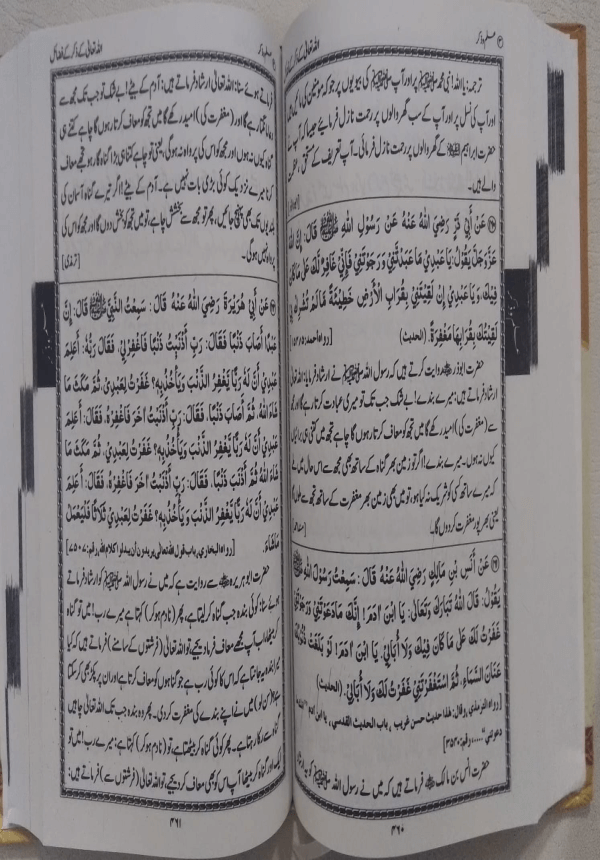 علم و ذکر
اللہ تعالیٰ کے ذکر کے فضائل
ترجمہ: یا اللہ! نبی محمد ﷺ پر اور آپ ﷺ کی بیویوں پر جو کہ مومنین کی مائیں ہیں
اور آپ کی نسل پر اور آپ کے سب گھر والوں پر رحمت نازل فرمائیے جیسا کہ آپ نے
حضرت ابراہیم علیہ السلام کے گھر والوں پر رحمت نازل فرمائی۔ آپ تعریف کے مستحق، عظمت
والے ہیں۔
عَنْ أَبِي ذَرٍّ رَضِيَ اللهُ عَنْهُ عَنْ رَسُولِ اللهِ ﷺ قَالَ: إِنَّ اللهَ
عَزَّوَجَلَّ يَقُولُ: يَاعَبْدِي مَا عَبَدْتَّنِي وَرَجَوْتَنِي فَإِنِّي غَافِرٌ لَكَ عَلَى مَا كَانَ
فِيكَ، وَيَاعَبْدِي إِنْ لَقِيتَنِي بِقُرَابِ الْأَرْضِ خَطِيئَةً مَالَمْ تُشْرِكْ بِي
لَقِيتُكَ بِقُرَابِهَا مَغْفِرَةً. (الحديث) [رواه احمد: ١٥٤/٥]
حضرت ابوذر رضی اللہ عنہ روایت کرتے ہیں کہ رسول اللہ ﷺ نے ارشاد فرمایا: اللہ تعالیٰ
ارشاد فرماتے ہیں: میرے بندے! بے شک جب تک تو میری عبادت کرتا رہے گا اور مجھ
سے (مغفرت کی) امید رکھے گا میں تجھ کو معاف کرتا رہوں گا چاہے تجھ میں کتنی ہی برائیاں
کیوں نہ ہوں۔ میرے بندے! اگر تو زمین بھر گناہ کے ساتھ بھی مجھ سے اس حال میں ملے
کہ میرے ساتھ کسی کو شریک نہ کیا ہو، تو میں بھی زمین بھر مغفرت کے ساتھ تجھ سے ملوں گا
یعنی بھرپور مغفرت کردوں گا۔
عَنْ أَنَسِ بْنِ مَالِكٍ رَضِيَ اللهُ عَنْهُ قَالَ: سَمِعْتُ رَسُولَ اللهِ ﷺ
يَقُولُ: قَالَ اللهُ تَبَارَكَ وَتَعَالَى: يَا ابْنَ اٰدَمَ! إِنَّكَ مَادَعَوْتَنِي وَرَجَوْتَنِي
غَفَرْتُ لَكَ عَلَى مَا كَانَ فِيكَ وَلَا أُبَالِي. يَا ابْنَ اٰدَمَ! لَوْ بَلَغَتْ ذُنُوبُكَ
عَنَانَ السَّمَاءِ، ثُمَّ اسْتَغْفَرْتَنِي غَفَرْتُ لَكَ وَلَا أُبَالِي. (الحديث)
[رواه الترمذي وقال: هذا حديث حسن غريب، باب الحديث القدسي، يا ابن آدم انك ما
دعوتني......، رقم: ٣٥٤٠]
حضرت انس بن مالک رضی اللہ عنہ فرماتے ہیں کہ میں نے رسول اللہ ﷺ کو یہ ارشاد
۳۶۰
علم و ذکر
اللہ تعالیٰ کے ذکر کے فضائل
فرماتے ہوئے سنا: اللہ تعالیٰ ارشاد فرماتے ہیں: آدم کے بیٹے! بے شک تو جب تک مجھ سے
دعا مانگتا رہے گا اور (مغفرت کی) امید رکھے گا میں تجھ کو معاف کرتا رہوں گا چاہے کتنے ہی
گناہ کیوں نہ ہوں اور مجھ کو اس کی پرواہ نہ ہوگی، یعنی تو چاہے کتنا ہی بڑا گناہ گار ہو تجھے معاف
کرنا میرے نزدیک کوئی بڑی بات نہیں ہے۔ آدم کے بیٹے! اگر تیرے گناہ آسمان کی
بلندیوں تک بھی پہنچ جائیں، پھر تو مجھ سے بخشش چاہے، تو میں تجھ کو بخش دوں گا اور مجھ کو اس کی
پرواہ نہیں ہوگی۔ [ترمذی]
عَنْ أَبِي هُرَيْرَةَ رَضِيَ اللهُ عَنْهُ قَالَ: سَمِعْتُ النَّبِيَّ ﷺ قَالَ: إِنَّ
عَبْدًا أَصَابَ ذَنْبًا فَقَالَ: رَبِّ أَذْنَبْتُ ذَنْبًا فَاغْفِرْلِي، فَقَالَ رَبُّهُ: أَعَلِمَ
عَبْدِي أَنَّ لَهُ رَبًّا يَغْفِرُ الذَّنْبَ وَيَأْخُذُبِهِ؟ غَفَرْتُ لِعَبْدِي، ثُمَّ مَكَثَ مَا
شَاءَ اللهُ، ثُمَّ أَصَابَ ذَنْبًا، فَقَالَ: رَبِّ أَذْنَبْتُ اٰخَرَ فَاغْفِرْهُ، فَقَالَ: أَعَلِمَ
عَبْدِي أَنَّ لَهُ رَبًّا يَغْفِرُ الذَّنْبَ وَيَأْخُذُبِهِ؟ غَفَرْتُ لِعَبْدِي، ثُمَّ مَكَثَ مَا
شَاءَ اللهُ ثُمَّ أَذْنَبَ ذَنْبًا، فَقَالَ: رَبِّ أَذْنَبْتُ اٰخَرَ فَاغْفِرْهُ، فَقَالَ: أَعَلِمَ
عَبْدِي أَنَّ لَهُ رَبًّا يَغْفِرُ الذَّنْبَ وَيَأْخُذُبِهِ؟ غَفَرْتُ لِعَبْدِي ثَلَاثًا فَلْيَعْمَلْ
مَاشَاءَ. [رواه البخاري، باب قول الله تعالى يريدون أن يبدلوا كلام الله، رقم: ٧٥٠٧]
حضرت ابو ہریرہ رضی اللہ عنہ سے روایت ہے کہ میں نے رسول اللہ ﷺ کو ارشاد فرماتے
ہوئے سنا: کوئی بندہ جب گناہ کر لیتا ہے، پھر (نادم ہو کر) کہتا ہے میرے رب! میں تو گناہ
کر بیٹھا اب آپ مجھے معاف فرما دیجیے تو اللہ تعالیٰ (فرشتوں کے سامنے) فرماتے ہیں کہ کیا
میرا بندہ یہ جانتا ہے کہ اس کا کوئی رب ہے جو گناہوں کو معاف کرتا ہے اور ان پر پکڑ بھی کر سکتا
ہے؟ (سن لو) میں نے اپنے بندے کی مغفرت کر دی۔ پھر وہ بندہ جب تک اللہ تعالیٰ چاہیں
گناہ سے رکا رہتا ہے۔ پھر کوئی گناہ کر بیٹھتا ہے تو (نادم ہو کر) کہتا ہے: میرے رب! میں تو
ایک اور گناہ کر بیٹھا آپ اس کو بھی معاف کر دیجیے تو اللہ تعالیٰ (فرشتوں سے) فرماتے ہیں:
۳۶۱